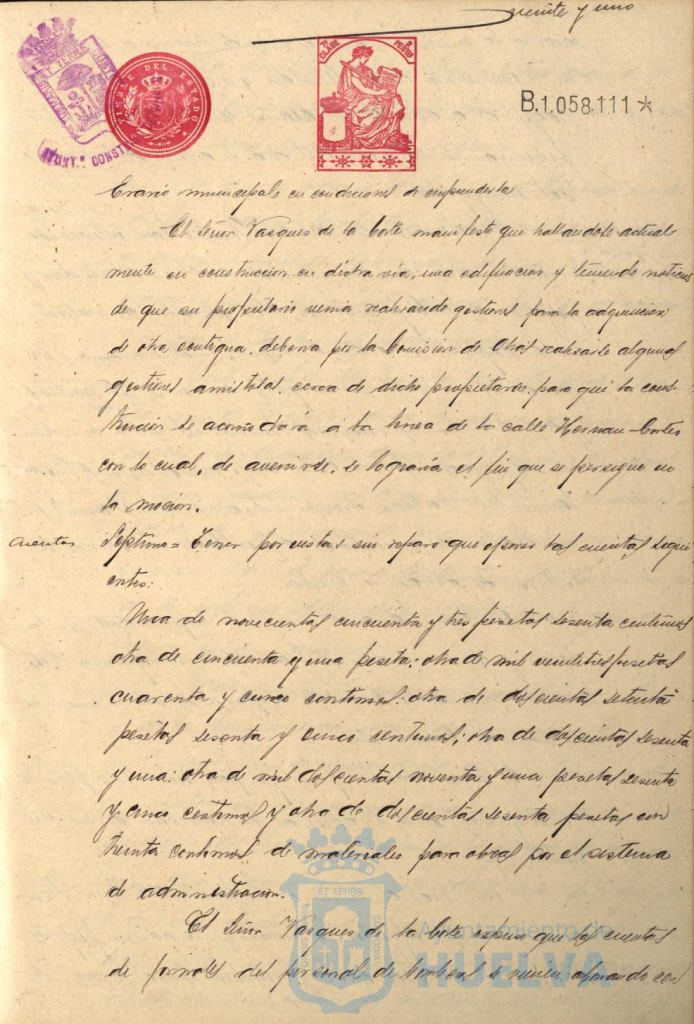 veinte y uno
TIMBRE DEL ESTADO
7ª CLASE
B.1.058.111 *
AYUNTº CONST
Erario municipal en condiciones de emprenderla
El Señor Vasques de la Corte manifestó que hallandose actual-
mente en construccion en dicha via, una edificacion y teniendo noticias
de que su propietario venia realizando gestiones para la adquisicion
de otra contigua, deberia por la Comision de Obras realizarse algunas
gestiones amistosas cerca de dicho propietario para que la cons-
trucción se acomodará á la linea de la calle Hernan-Cortes
con lo cual, de avenirse, se lograria el fin que se persigue en
la mocion.
Cuentas
Septimo = Tener por vistas sin reparo que oponer las cuentas sigui-
entes:
Una de novecientas cincuenta y tres pesetas sesenta centimos
otra de cincuenta y una peseta; otra de mil veintitres pesetas
cuarenta y cinco centimos: otra de doscientas setenta
pesetas sesenta y cinco centimos; otra de doscientas sesenta
y una: otra de mil doscientas noventa y una pesetas sesenta
y cinco centimos y otra de doscientas sesenta pesetas con
treinta centimos, de materiales para obras por el sistema
de administracion.
El Señor Vasques de la Corte expuso que las cuentas
de jornales del personal de bomberos se vienen abonando con
ET TERRA
Ayuntamiento de
HUELVA